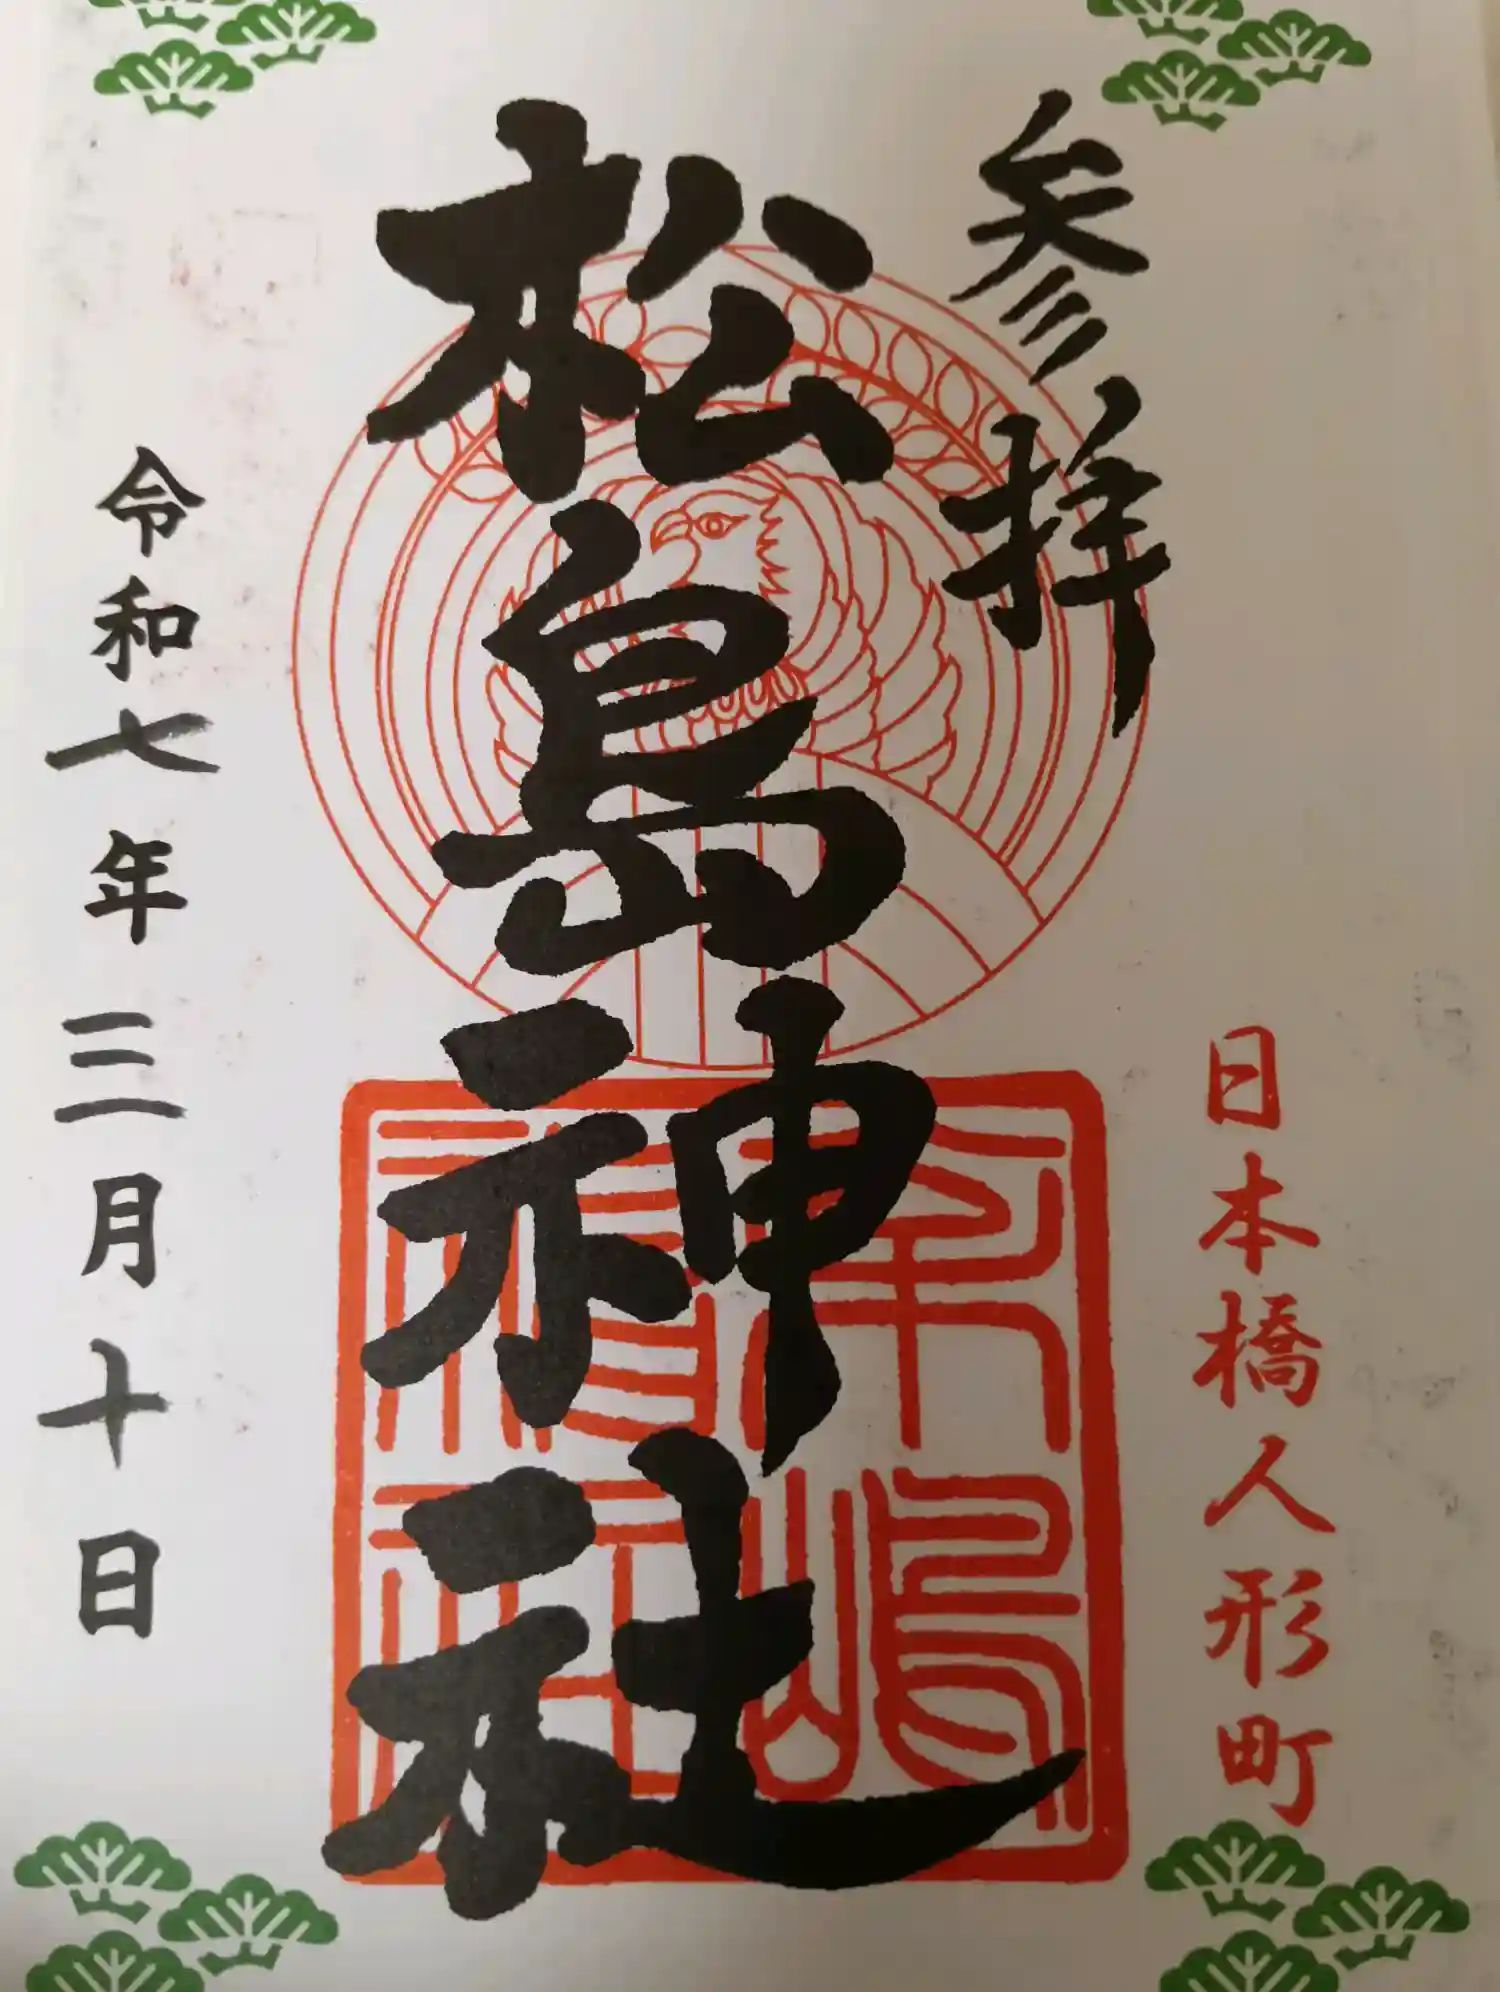 参拝
日本橋人形町
松島神社
令和七年三月十日